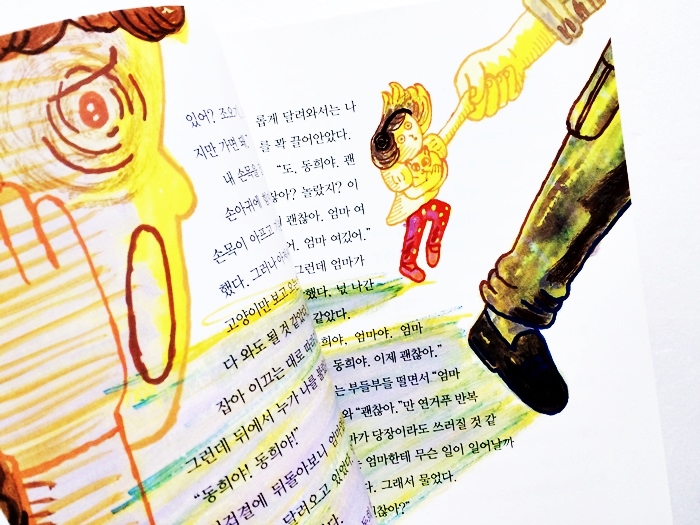 있어? 조오
지만 가면
내 손목을
손아귀에
손목이 아프고
했다. 그러나
고양이만 보고
다 와도 될 것 같았
잡아 이끄는 대로
그런데 뒤에서 누가 나를
“동희야! 동희야!”
겁결에 뒤돌아보니
달려오고 있었다.
롭게 달려와서는 나
를 꽉 끌어안았다.
“도, 동희야. 괜
찮아? 놀랐지? 이
괜찮아. 엄마 여
어. 엄마 여깄어.”
그런데 엄마가
했다. 넋 나간
같았다.
희야. 엄마야. 엄마
동희야. 이제 괜찮아.”
는 부들부들 떨면서 “엄마
와 “괜찮아.”만 연거푸 반복
가 당장이라도 쓰러질 것 같
엄마한테 무슨 일이 일어날까
다. 그래서 물었다.
괜찮아?”